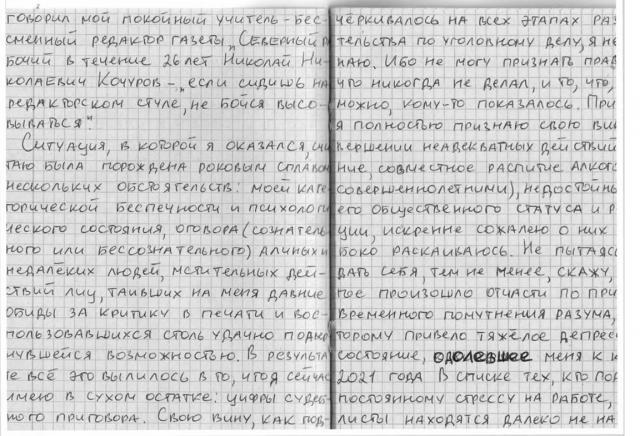 говорил мой покойный учитель – бес-
сменный редактор газеты „Северный р
бочий в течение 26 лет Николай Ни-
колаевич Кочуров – „если сидишь на
редакторском стуле, не бойся высо-
вываться".
Ситуация, в которой я оказался, счи
таю была порождена роковым сплавом
нескольких обстоятельств: моей кате-
горической беспечности и психологи
ческого состояния, оговора (сознатель
ного или бессознательного) алчных и
недалёких людей, мстительных дей-
ствий лиц, таивших на меня давние
обиды за критику в печати и вос-
пользовавшихся столь удачно подвер
нувшейся возможностью. В результа
е всё это вылилось в то, что я сейчас
имею в сухом остатке: цифры судеб-
ного приговора. Свою вину, как под-
чёркивалось на всех этапах раз
тельства по уголовному делу, я не
наю. Ибо не могу признать прав
что никогда не делал, и то, что,
можно, кому-то показалось. При
я полностью признаю свою вин
вершении неадекватных действий
ние, совместное распитие алког
совершеннолетними), недостойны
его общественного статуса и р
ции, искренне сожалею о них
боко раскаиваюсь. Не пытаясь
дать себя, тем не менее, скажу,
гое произошло отчасти по при
временного помутнения разума,
торому привело тяжёлое депрес
состояние, одолевшее меня к к
2021 года В списке тех, кто под
постоянному стрессу на работе,
листы находятся далеко не на